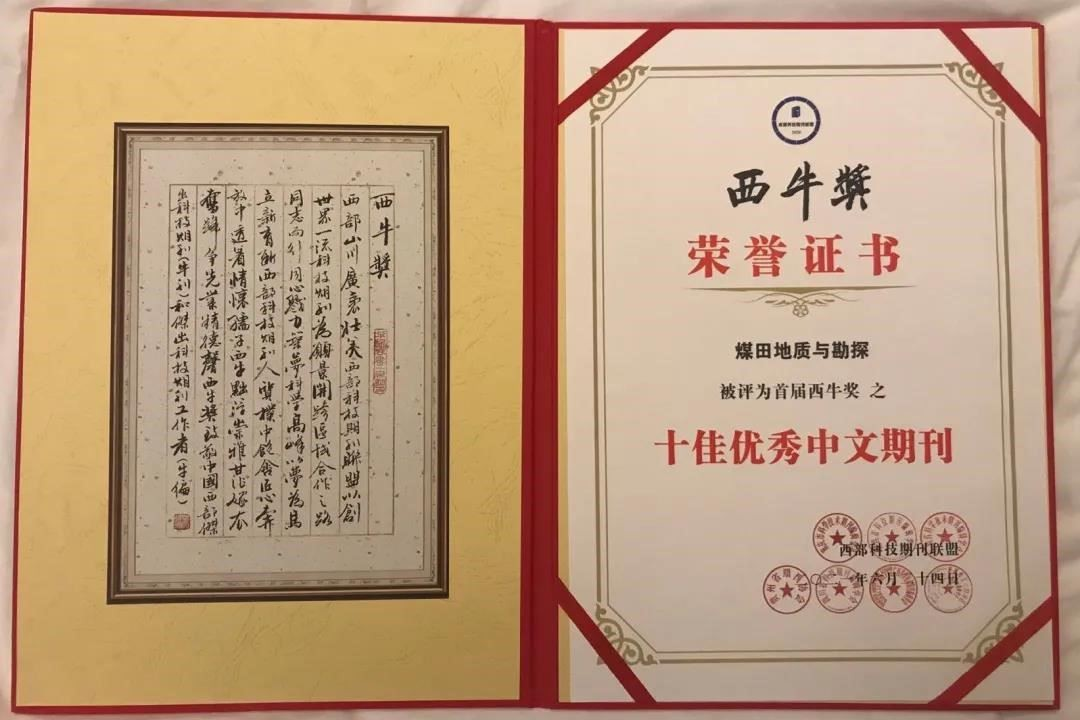 西牛獎
西部山川廣袤壯美西部科技期刊聯盟以創
世界一流科技期刊為願景開跨區域合作之路
同志而行同心戮力築夢科學高峰以夢為馬
立新育新西部科技期刊人質樸中飽含匠心奔
放中透着情懷孺子西牛崇雅甘作嫁衣
奮蹄爭先業精德馨西牛獎致敬中國西部傑
出科技期刊(牛刊)和傑出科技期刊工作者(牛編)
西部科技期刊联盟
2020
西牛獎
荣誉证书
煤田地质与勘探
被评为首届西牛奖 之
十佳优秀中文期刊
西部科技期刊联盟
年六月 十四日
贵州省期刊协会